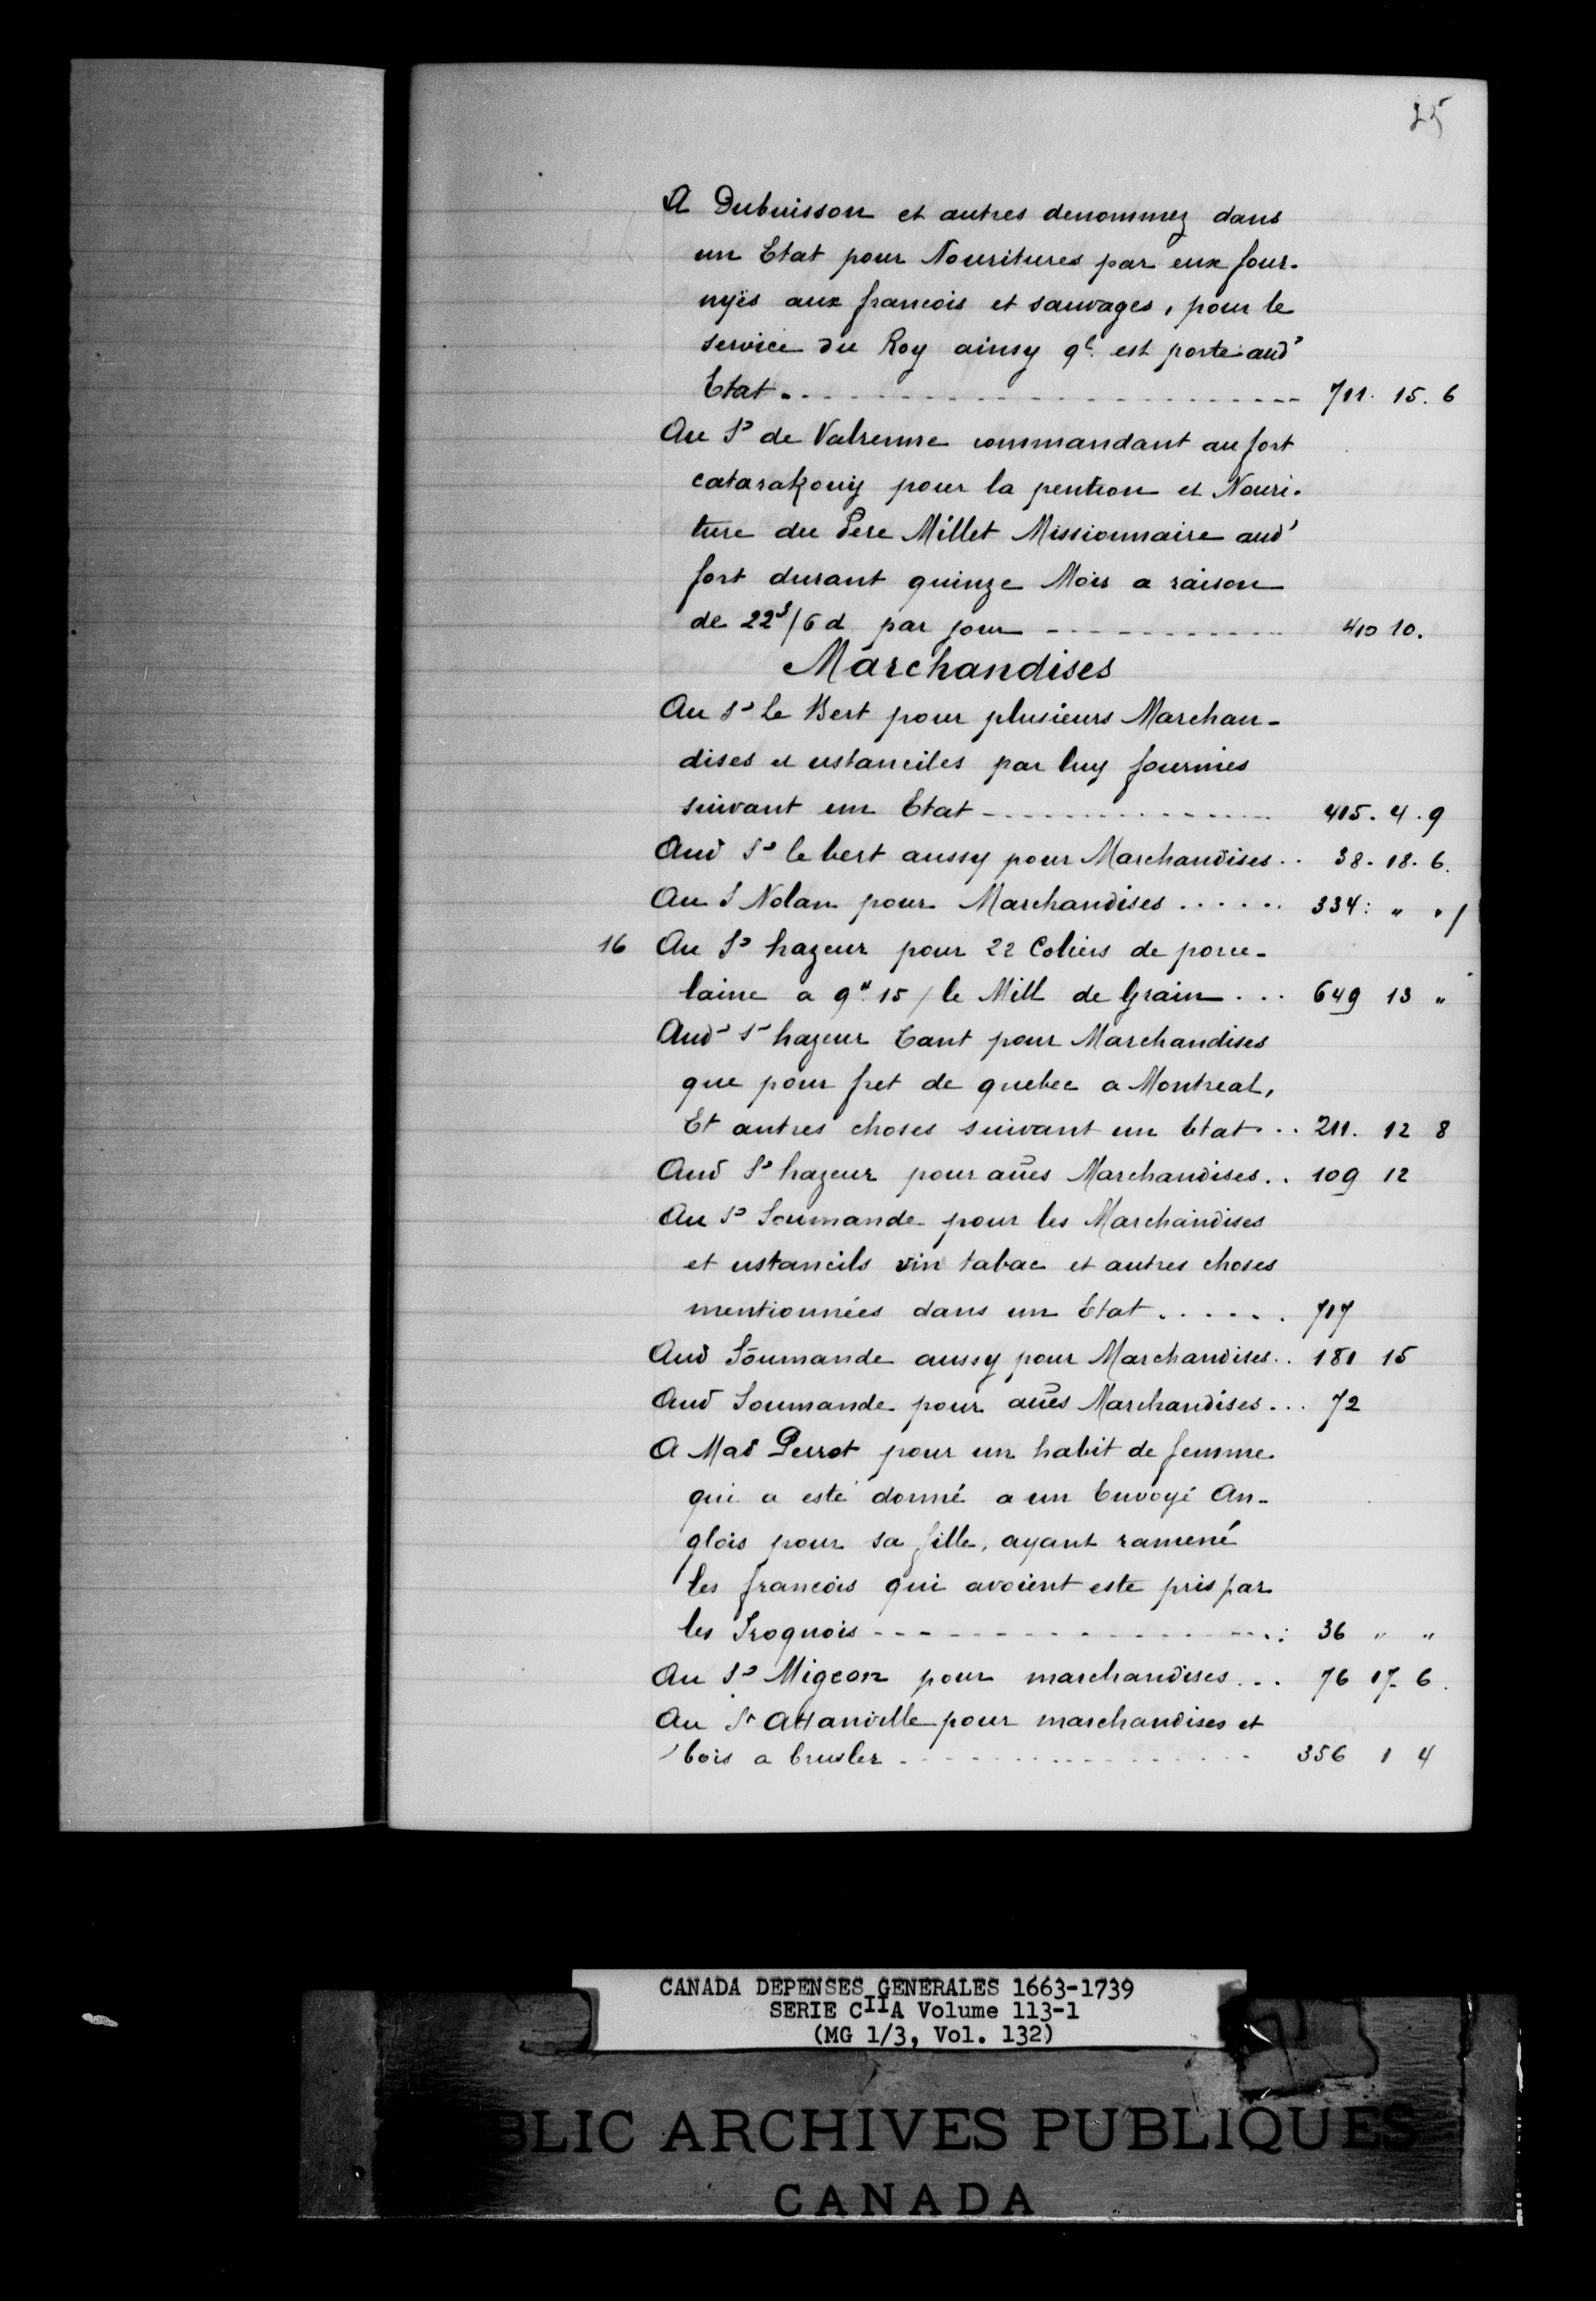 25
A Dubuisson et autres denommez dans
un Etat pour Nouritures par eux four-
nyes aux francois et sauvages, pour le
service du Roy ainsy ql. est porté aud'
Etat. 711. 15. 6
Au Sr de Valrenne commandant au fort
catarakouy pour la pention et Nouri-
ture du Pere Millet Missionnaire aud'
fort durant quinze Mois a raison
de 22s/6d par jour 410 10.
Marchandises
Au Sr le Bert pour plusieurs Marchan-
dises et ustanciles par luy fournies
suivant un Etat 415. 4. 9
Aud Sr le bert aussy pour Marchandises.. 38. 18. 6.
Au S Nolan pour Marchandises...... 334: " "/
16 Au Sr hazeur pour 22 Coliers de porce-
laine a 9" 15/ le Mill de Grain... 649 13 "
Aud Sr hazeur tant pour Marchandises
que pour fret de quebec a Montreal,
Et autres choses suivant un Etat.. 211. 12 8
Aud Sr hazeur pour aūes Marchandises.. 109 12
Au Sr Soumande pour les Marchandises
et ustancils vin tabac et autres choses
mentionnées dans un Etat...... 717
Aud Soumande aussy pour Marchandises.. 181 15
Aud Soumande pour aūes Marchandises... 72
A Mad Perrot pour un habit de femme
qui a esté donné a un Envoyé An-
glois pour sa fille, ayant ramené
les francois qui avoient este pris par
les Iroquois 36 " "
Au Sr Migeon pour marchandises... 76 17 6.
Au Sr Attanville pour marchandises et
bois a brusler 356 1 4
CANADA DEPENSES GENERALES 1663-1739
SERIE CIIA Volume 113-1
(MG 1/3, Vol. 132)
BLIC ARCHIVES PUBLIQUES
CANADA